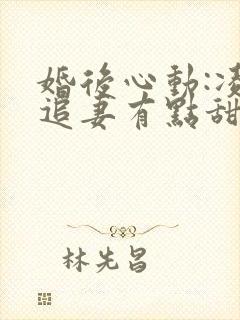 婚後心動:凌
追妻有點甜
林先昌